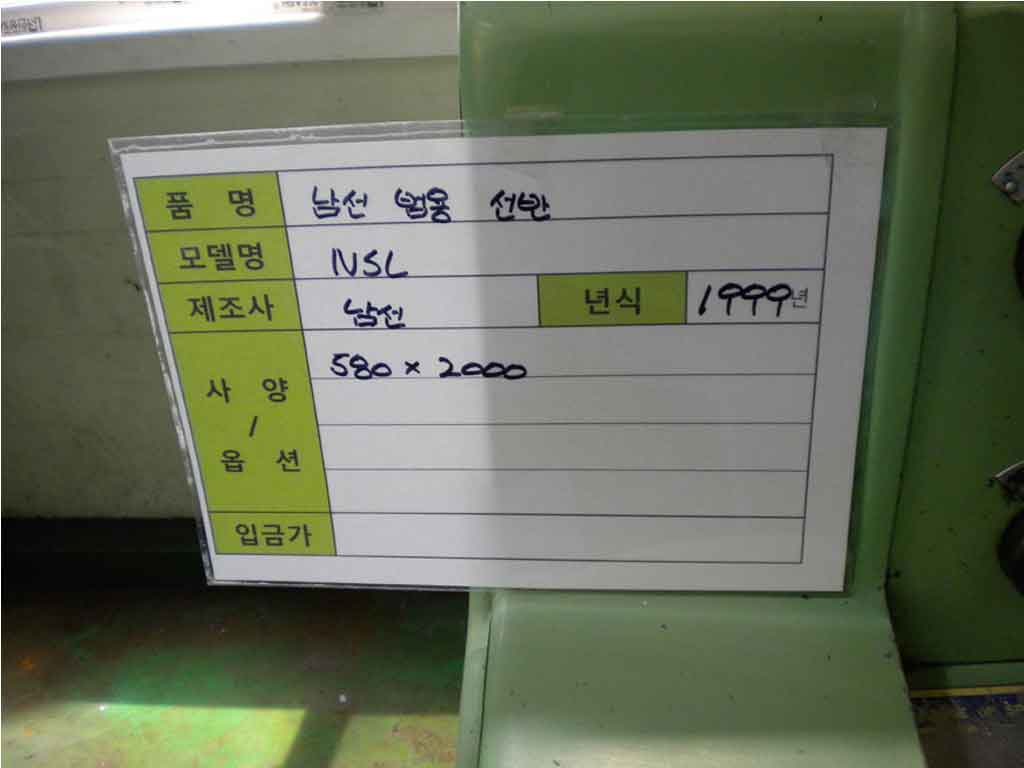 품 명 남선 범용 선반
모델명 NSL
제조사 남선 년식 1999년
사 양 / 옵 션 580 × 2000
입금가